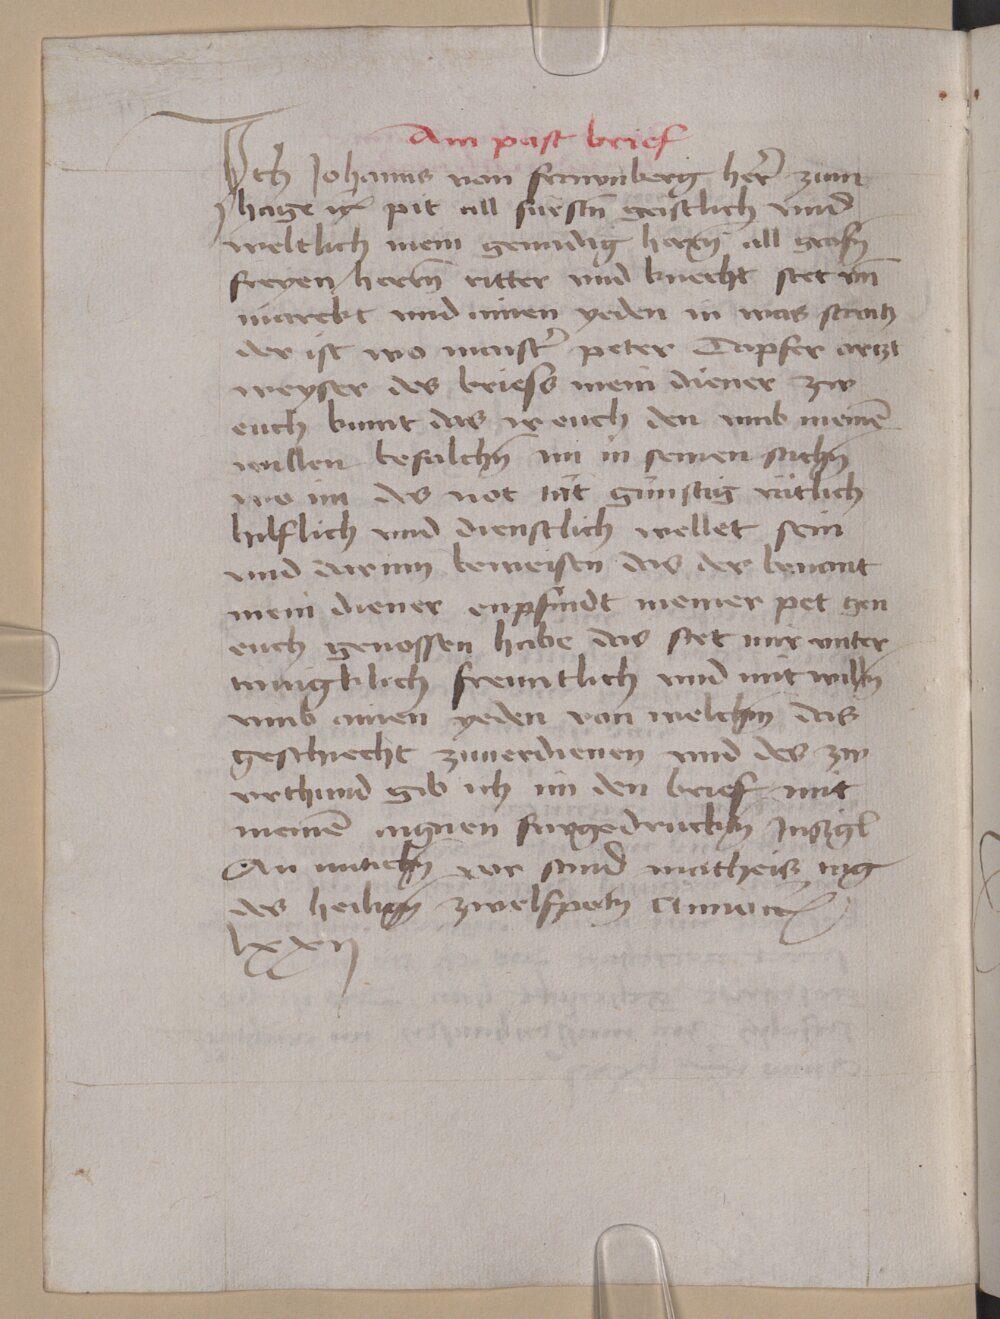 Ain past brief
Ich Johanns von frawnberg her zum
hage etc pit all fürstn geistlich und
weltlich mein genadig herrn all grafn
freyen herrn ritter und knecht stet vnd
märckt und ainen yeden in was stattz
der ist wo maister peter Tapfer artzt
weyser des briefs mein diener zw
euch kumt das ir euch den umb meinen
willen befolchn im in seinen sachn
wo im des not tät günstig rätlich
hilflich und dienstlich wellet sein
und darinn beweisen das der benant
mein diener enpfindt meiner pet gen
euch genossen habe das stet mir unter
tänigklich freuntlich und mit willn
umb ainen yeden von welchm das
geschiecht zuuerdienen und des zw
urkhund gib ich im den brief mit
meinem aignen furgedrucktn Insigl
An mitichn vor sand matheis tag
des heilign zwelfpotn Anno etc
lxxij